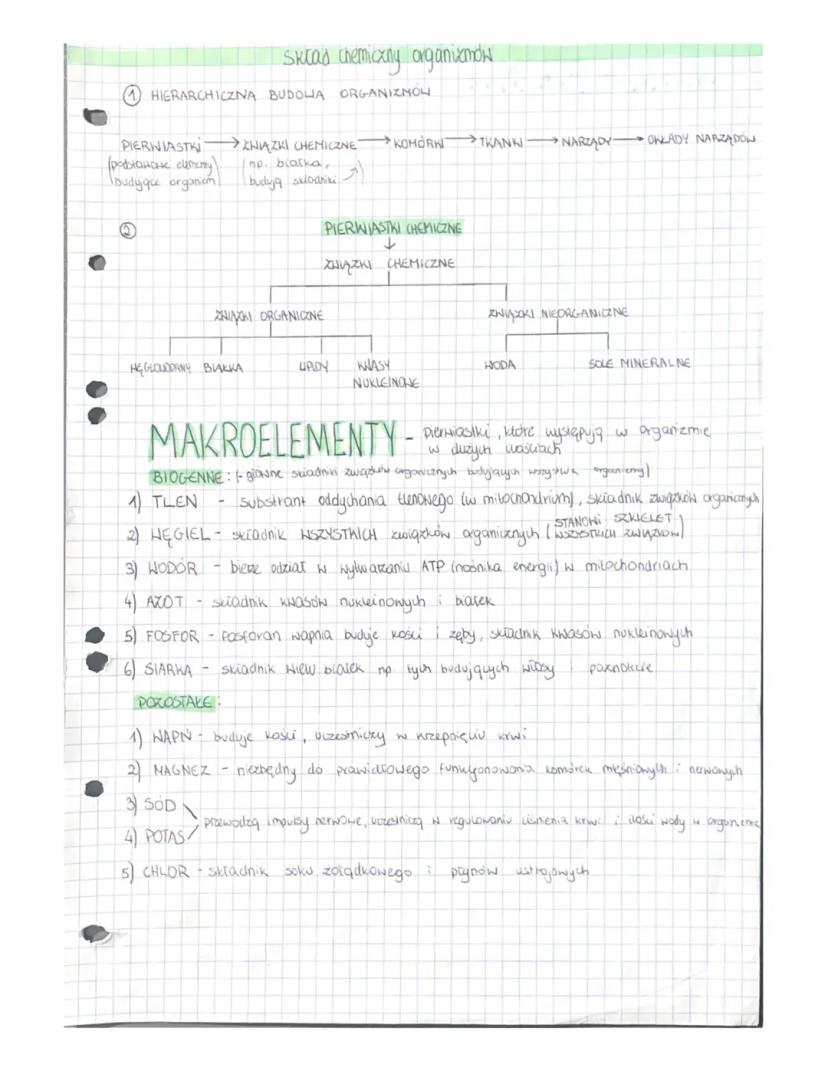 Skład chemiczny organizmów
① HIERARCHICZNA BUDOWA ORGANIZMÓW
PIERWIASTKI → ZWIĄZKI CHEMICZNE → KOMÓRKI → TKANKI → NARZĄDY → UKŁADY NARZĄDÓW
(podstawowe elementy budujące organizm)
(np. białka, budują składniki →)
② PIERWIASTKI CHEMICZNE
↓
ZWIĄZKI CHEMICZNE
ZWIĄZKI ORGANICZNE ZWIĄZKI NIEORGANICZNE
WĘGLOWODANY BIAŁKA LIPIDY KWASY NUKLEINOWE WODA SOLE MINERALNE
MAKROELEMENTY - pierwiastki, które występują w organizmie
w dużych ilościach
BIOGENNE: (- główne składniki związków organicznych budujących wszystkie organizmy)
1) TLEN - substrant oddychania tlenowego (w mitochondrium), składnik związków organicznych
2) WĘGIEL - składnik WSZYSTKICH związków organicznych (STANOWI SZKIELET WSZYSTKICH ZWIĄZKÓW)
3) WODÓR - bierze udział w wytwarzaniu ATP (nośnika energii) w mitochondriach
4) AZOT - składnik kwasów nukleinowych i białek
5) FOSFOR - fosforan wapnia buduje kości i zęby, składnik kwasów nukleinowych
6) SIARKA - składnik wielu białek np tych budujących włosy i paznokcie
POZOSTAŁE:
1) WAPŃ - buduje kości, uczestniczy w krzepnięciu krwi
2) MAGNEZ - niezbędny do prawidłowego funkcjonowania komórek mięśniowych i nerwowych
3) SÓD
przewodzą impulsy nerwowe, uczestniczą w regulowaniu ciśnienia krwi i ilości wody w organizmie
4) POTAS
5) CHLOR - składnik soku żołądkowego i płynów ustrojowych